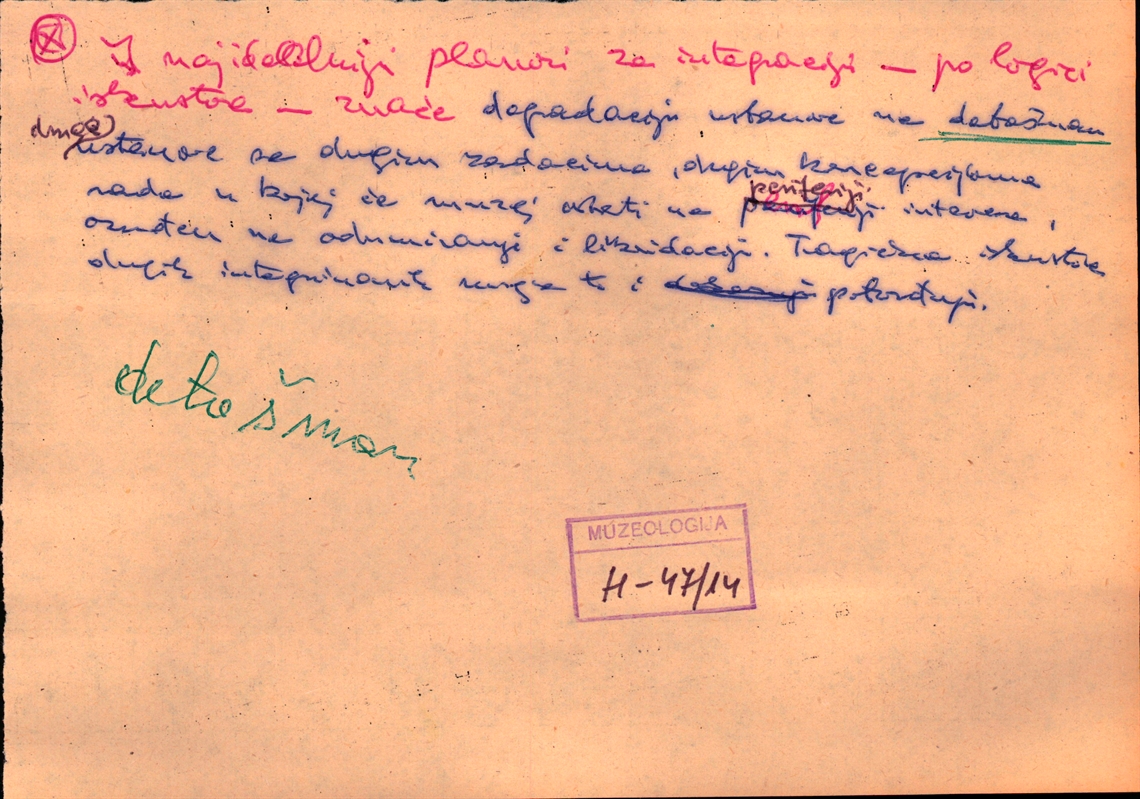 I najidealniji planovi za integraciju – po logici
iskustva – znače degradaciju ustanove na detašman
druge
ustanove sa drugim zadacima, drugim koncepcijama
periferiji
rada u kojoj će muzej ostati na periferiji interesa,
osuđen na odumiranje i likvidaciju. Tragična iskustva
drugih integriranih muzeja to i potvrđuju.
detašman
MUZEOLOGIJA
H-47/14